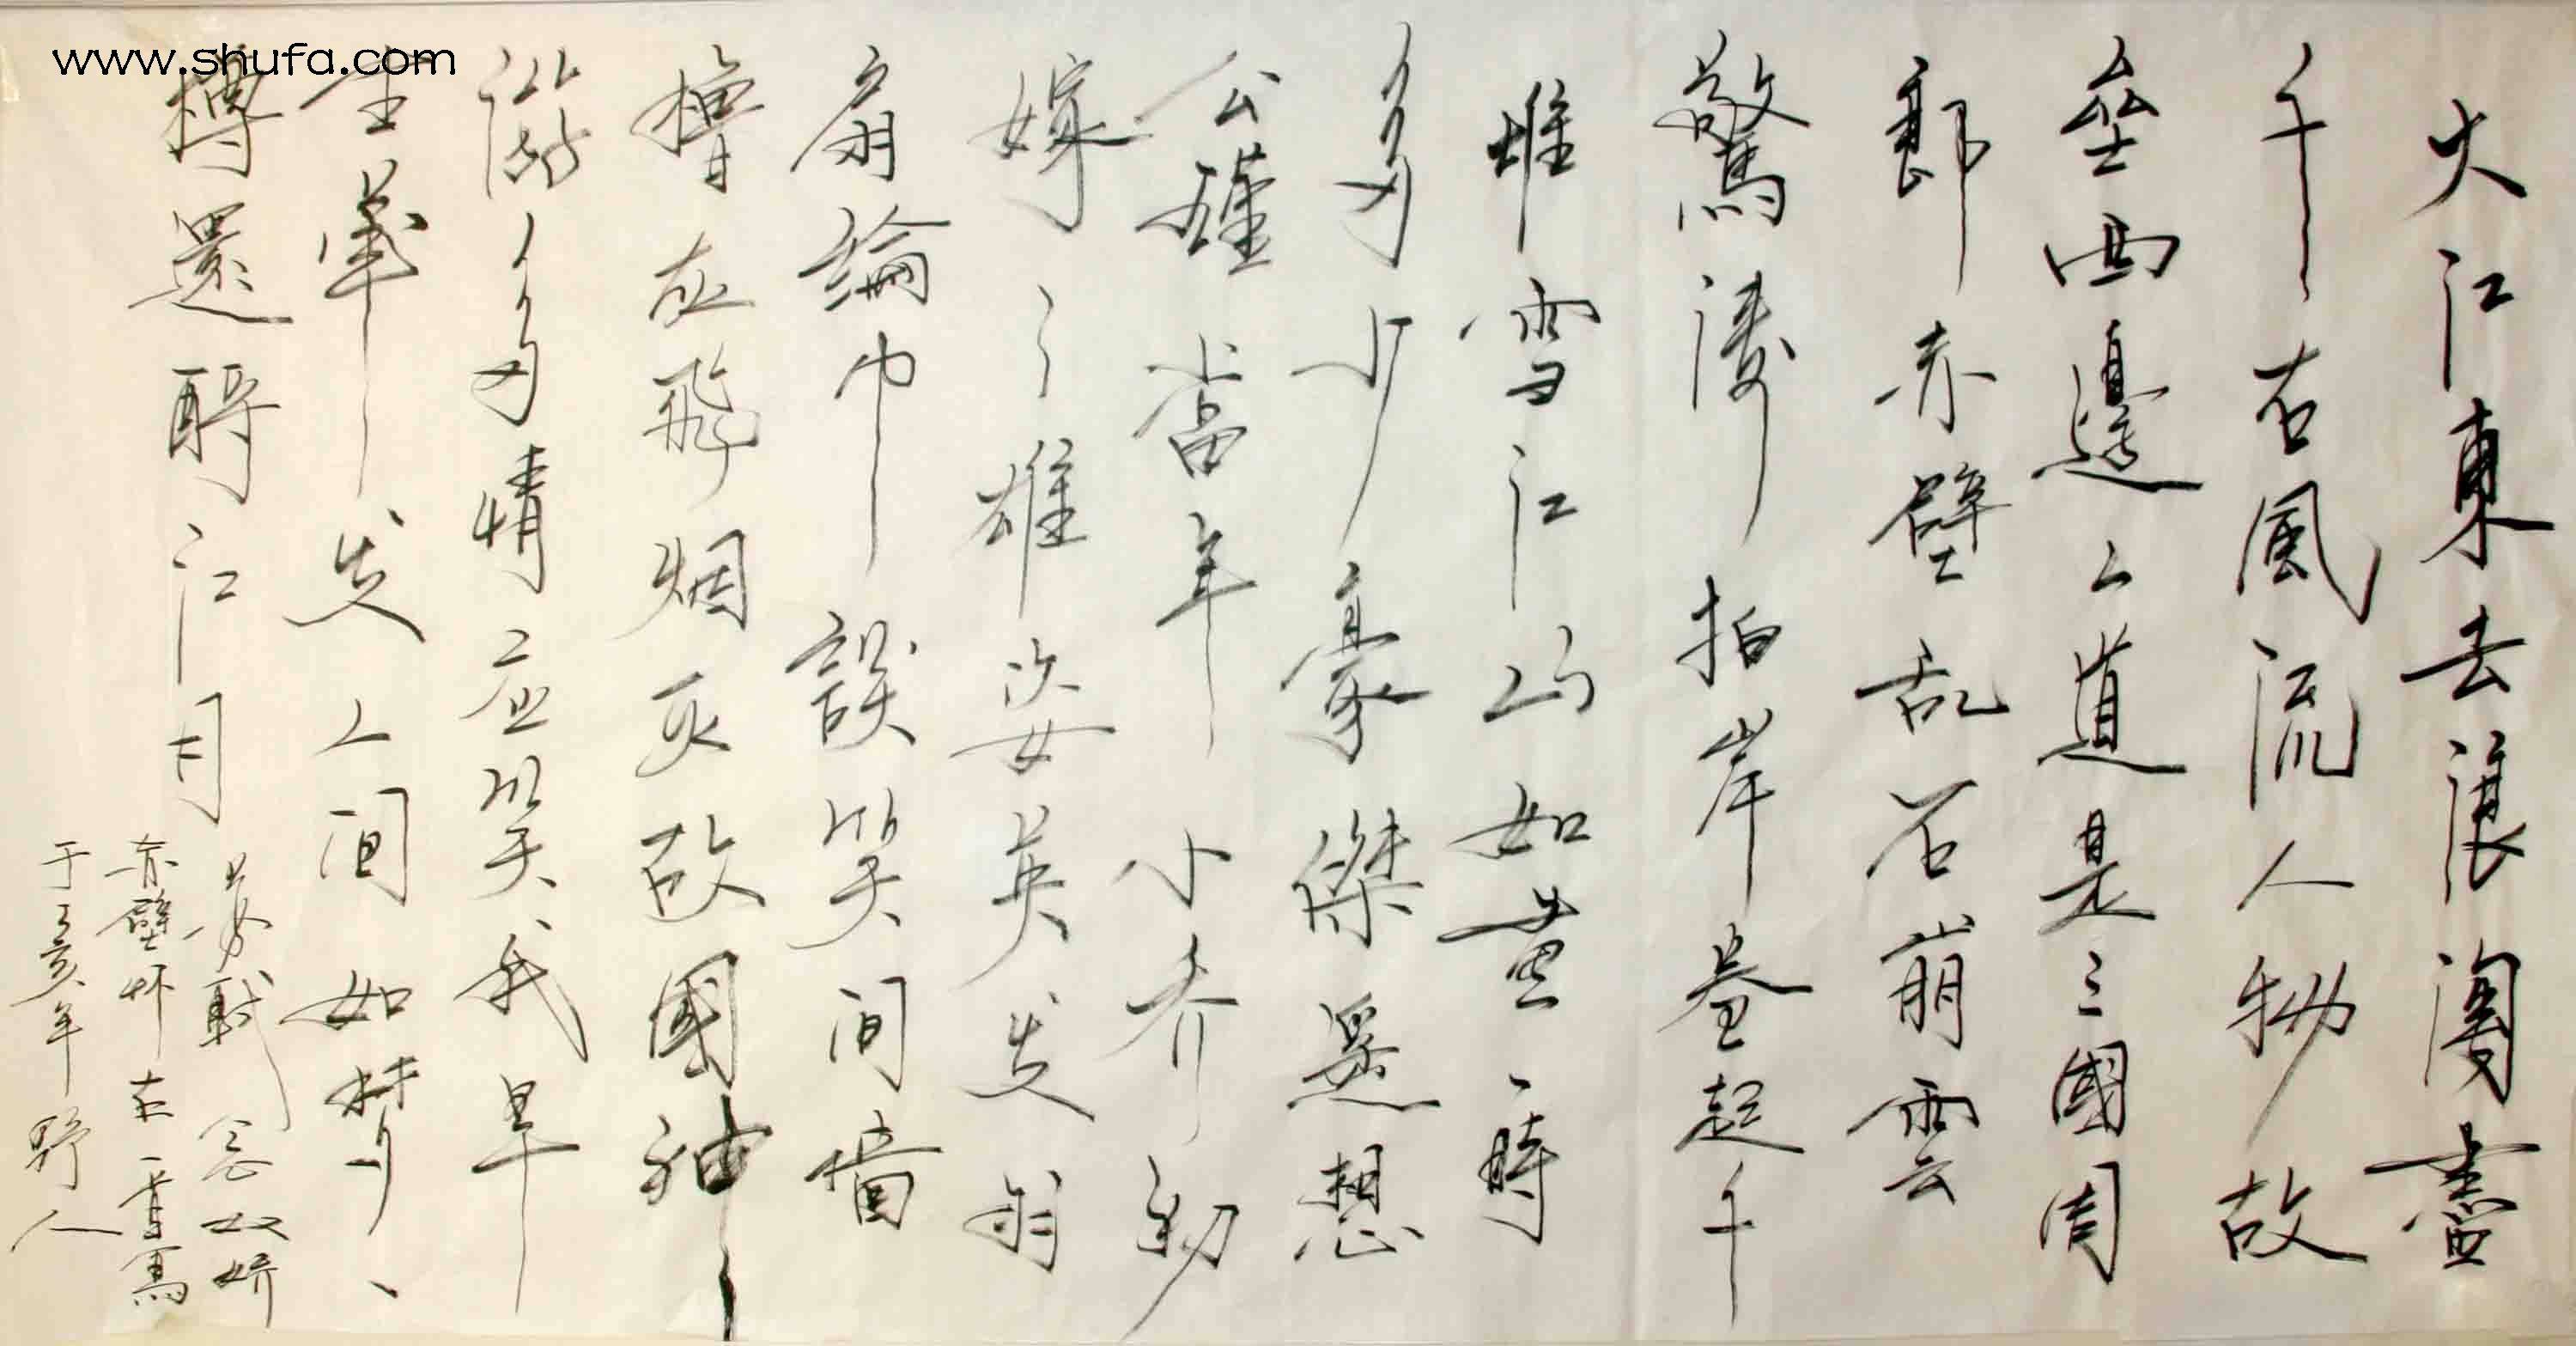 www.shufa.com
大江東去浪淘盡
千古風流人物故
壘西邊人道是三國周
郎赤壁乱石崩雲
驚濤拍岸卷起千
堆雪江山如畫一時
多少豪傑遥想
公瑾當年小乔初
嫁了雄姿英发羽
扇綸巾談笑间檣
櫓灰飛烟灭故國神
游多情应笑我早
生華发人间如梦
樽還酹江月
苏軾念奴娇
赤壁怀古一首寫
于亥年野人